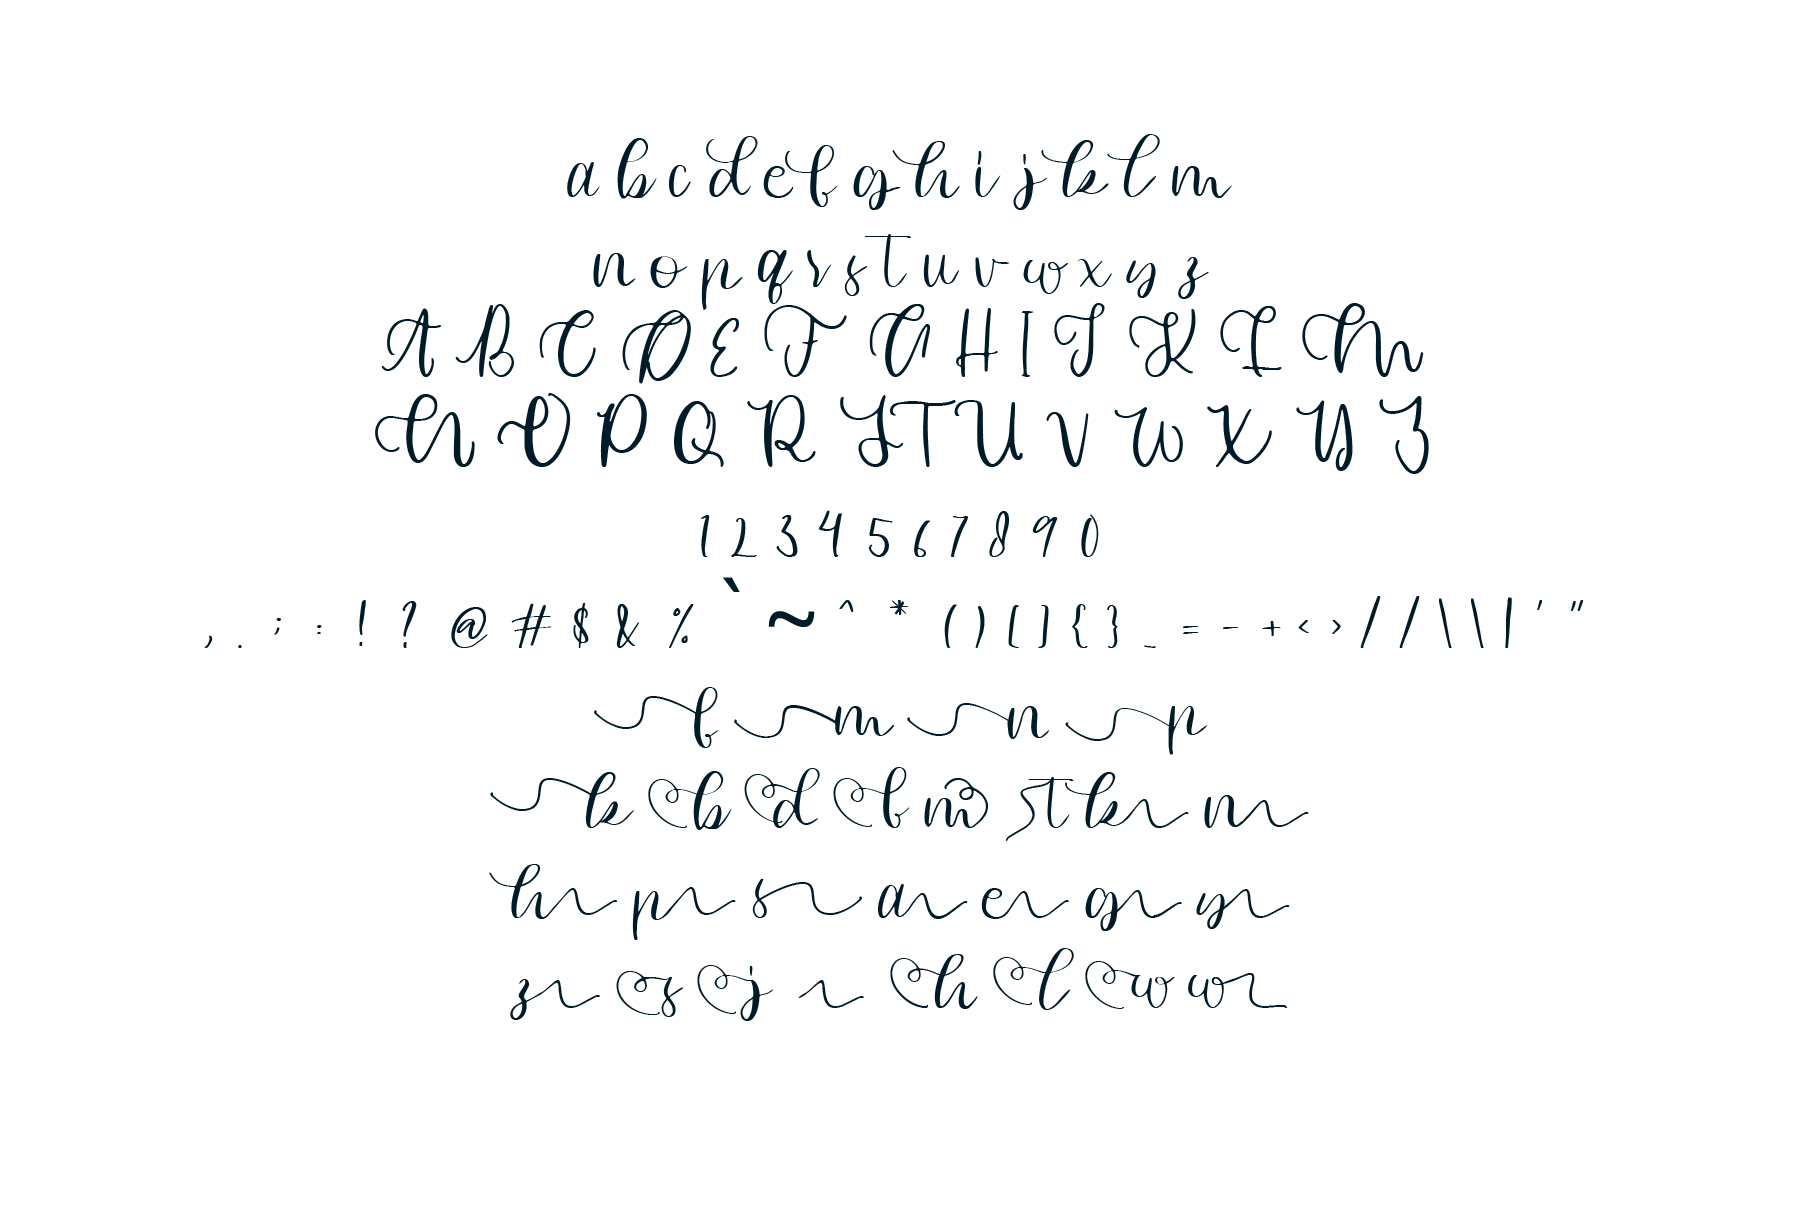 a b c d e f g h i j k l m
n o p q r s t u v w x y z
A B C D E F G H I J K L M
N O P Q R S T U V W X Y Z
1 2 3 4 5 6 7 8 9 0
, . ; : ! ? @ # $ & % ` ~ ^ * ( ) [ ] { } _ = - + < > / / \ \ | ' "
f m n p
k b d f m st k n
h p s a e g y
z s j h l w w